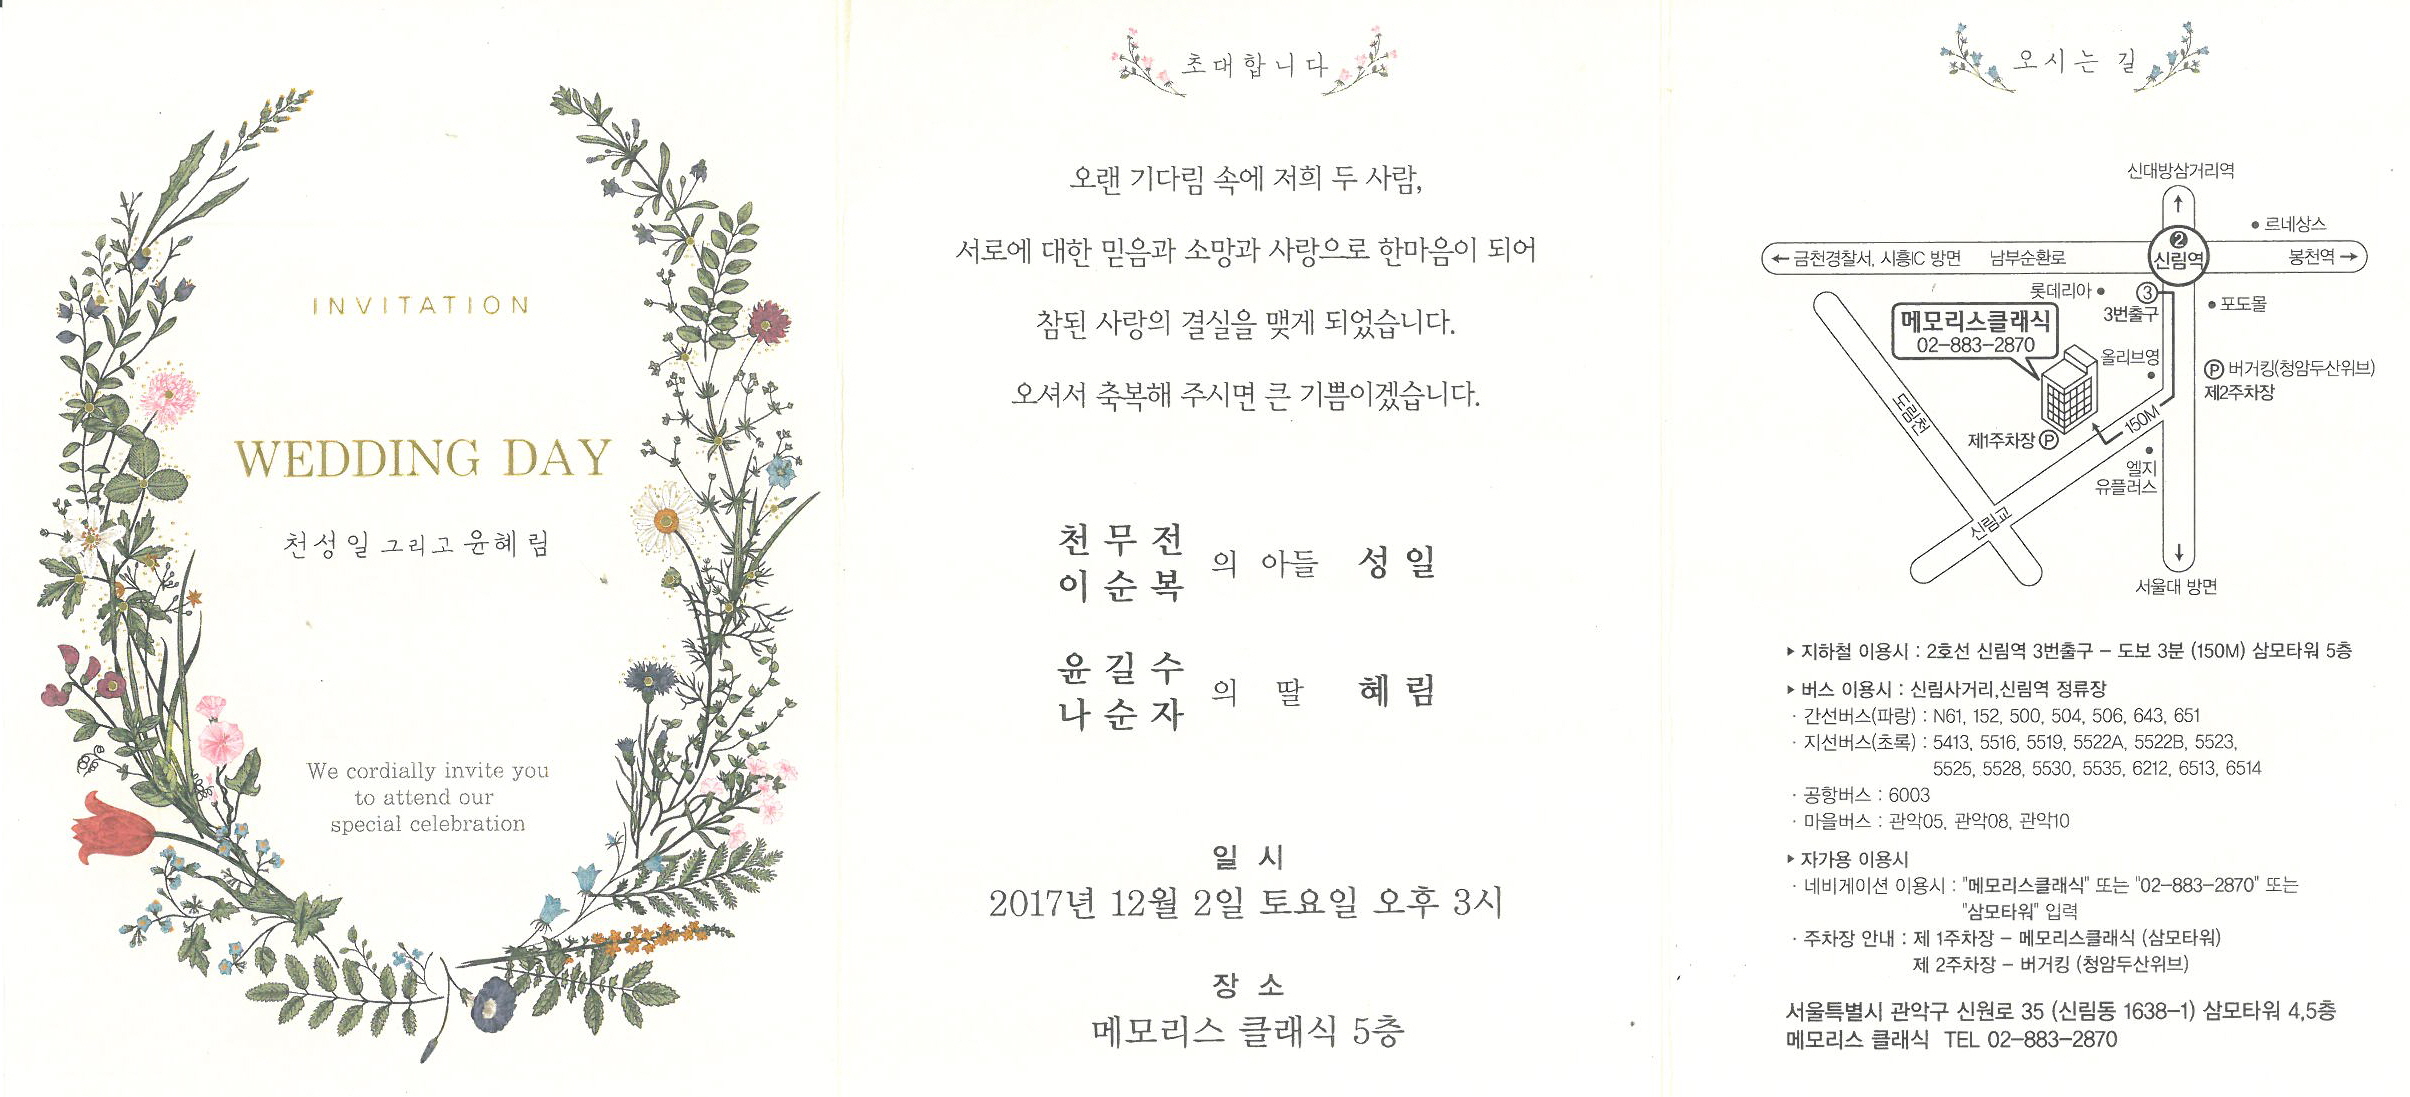 INVITATION
WEDDING DAY
천성일 그리고 윤혜림
We cordially invite you
to attend our
special celebration
초대합니다
오랜 기다림 속에 저희 두 사람,
서로에 대한 믿음과 소망과 사랑으로 한마음이 되어
참된 사랑의 결실을 맺게 되었습니다.
오셔서 축복해 주시면 큰 기쁨이겠습니다.
천무전
이순복
의 아들 성일
윤길수
나순자
의 딸 혜림
일 시
2017년 12월 2일 토요일 오후 3시
장 소
메모리스 클래식 5층
오시는 길
신대방삼거리역
르네상스
←금천경찰서, 시흥IC 방면 남부순환로
2
신림역
봉천역→
롯데리아
3
3번출구
포도몰
메모리스클래식
02-883-2870
올리브영
P 버거킹(청암두산위브)
제2주차장
도림천
150M
제1주차장 P
엘지
유플러스
신림교
서울대 방면
▶ 지하철 이용시 : 2호선 신림역 3번출구 - 도보 3분 (150M) 삼모타워 5층
▶ 버스 이용시 : 신림사거리,신림역 정류장
· 간선버스(파랑) : N61, 152, 500, 504, 506, 643, 651
· 지선버스(초록) : 5413, 5516, 5519, 5522A, 5522B, 5523,
5525, 5528, 5530, 5535, 6212, 6513, 6514
· 공항버스 : 6003
· 마을버스 : 관악05, 관악08, 관악10
▶ 자가용 이용시
· 네비게이션 이용시 : "메모리스클래식" 또는 "02-883-2870" 또는
"삼모타워" 입력
· 주차장 안내 : 제 1주차장 - 메모리스클래식 (삼모타워)
제 2주차장 - 버거킹 (청암두산위브)
서울특별시 관악구 신원로 35 (신림동 1638-1) 삼모타워 4,5층
메모리스 클래식 TEL 02-883-2870